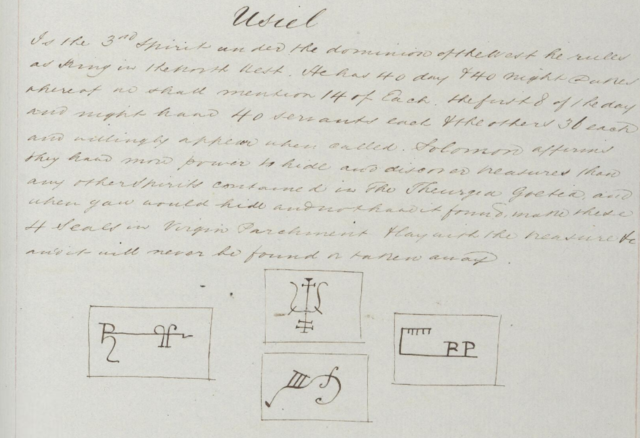 Usiel
Is the 3rd Spirit under the dominion of the West he rules
as King in the North West. He has 40 day & 40 night Dukes
whereof we shall mention 14 of Each. the first 8 of the day
and night have 40 servants each & the others 30 each
and willingly appear when called. Solomon affirms
they have more power to hide and discover treasures than
any other Spirits contained in The Theurgia Goetia, and
when you would hide and not have it found, make these
4 Seals in Virgin Parchment & lay with the treasure &c
and it will never be found or taken away.